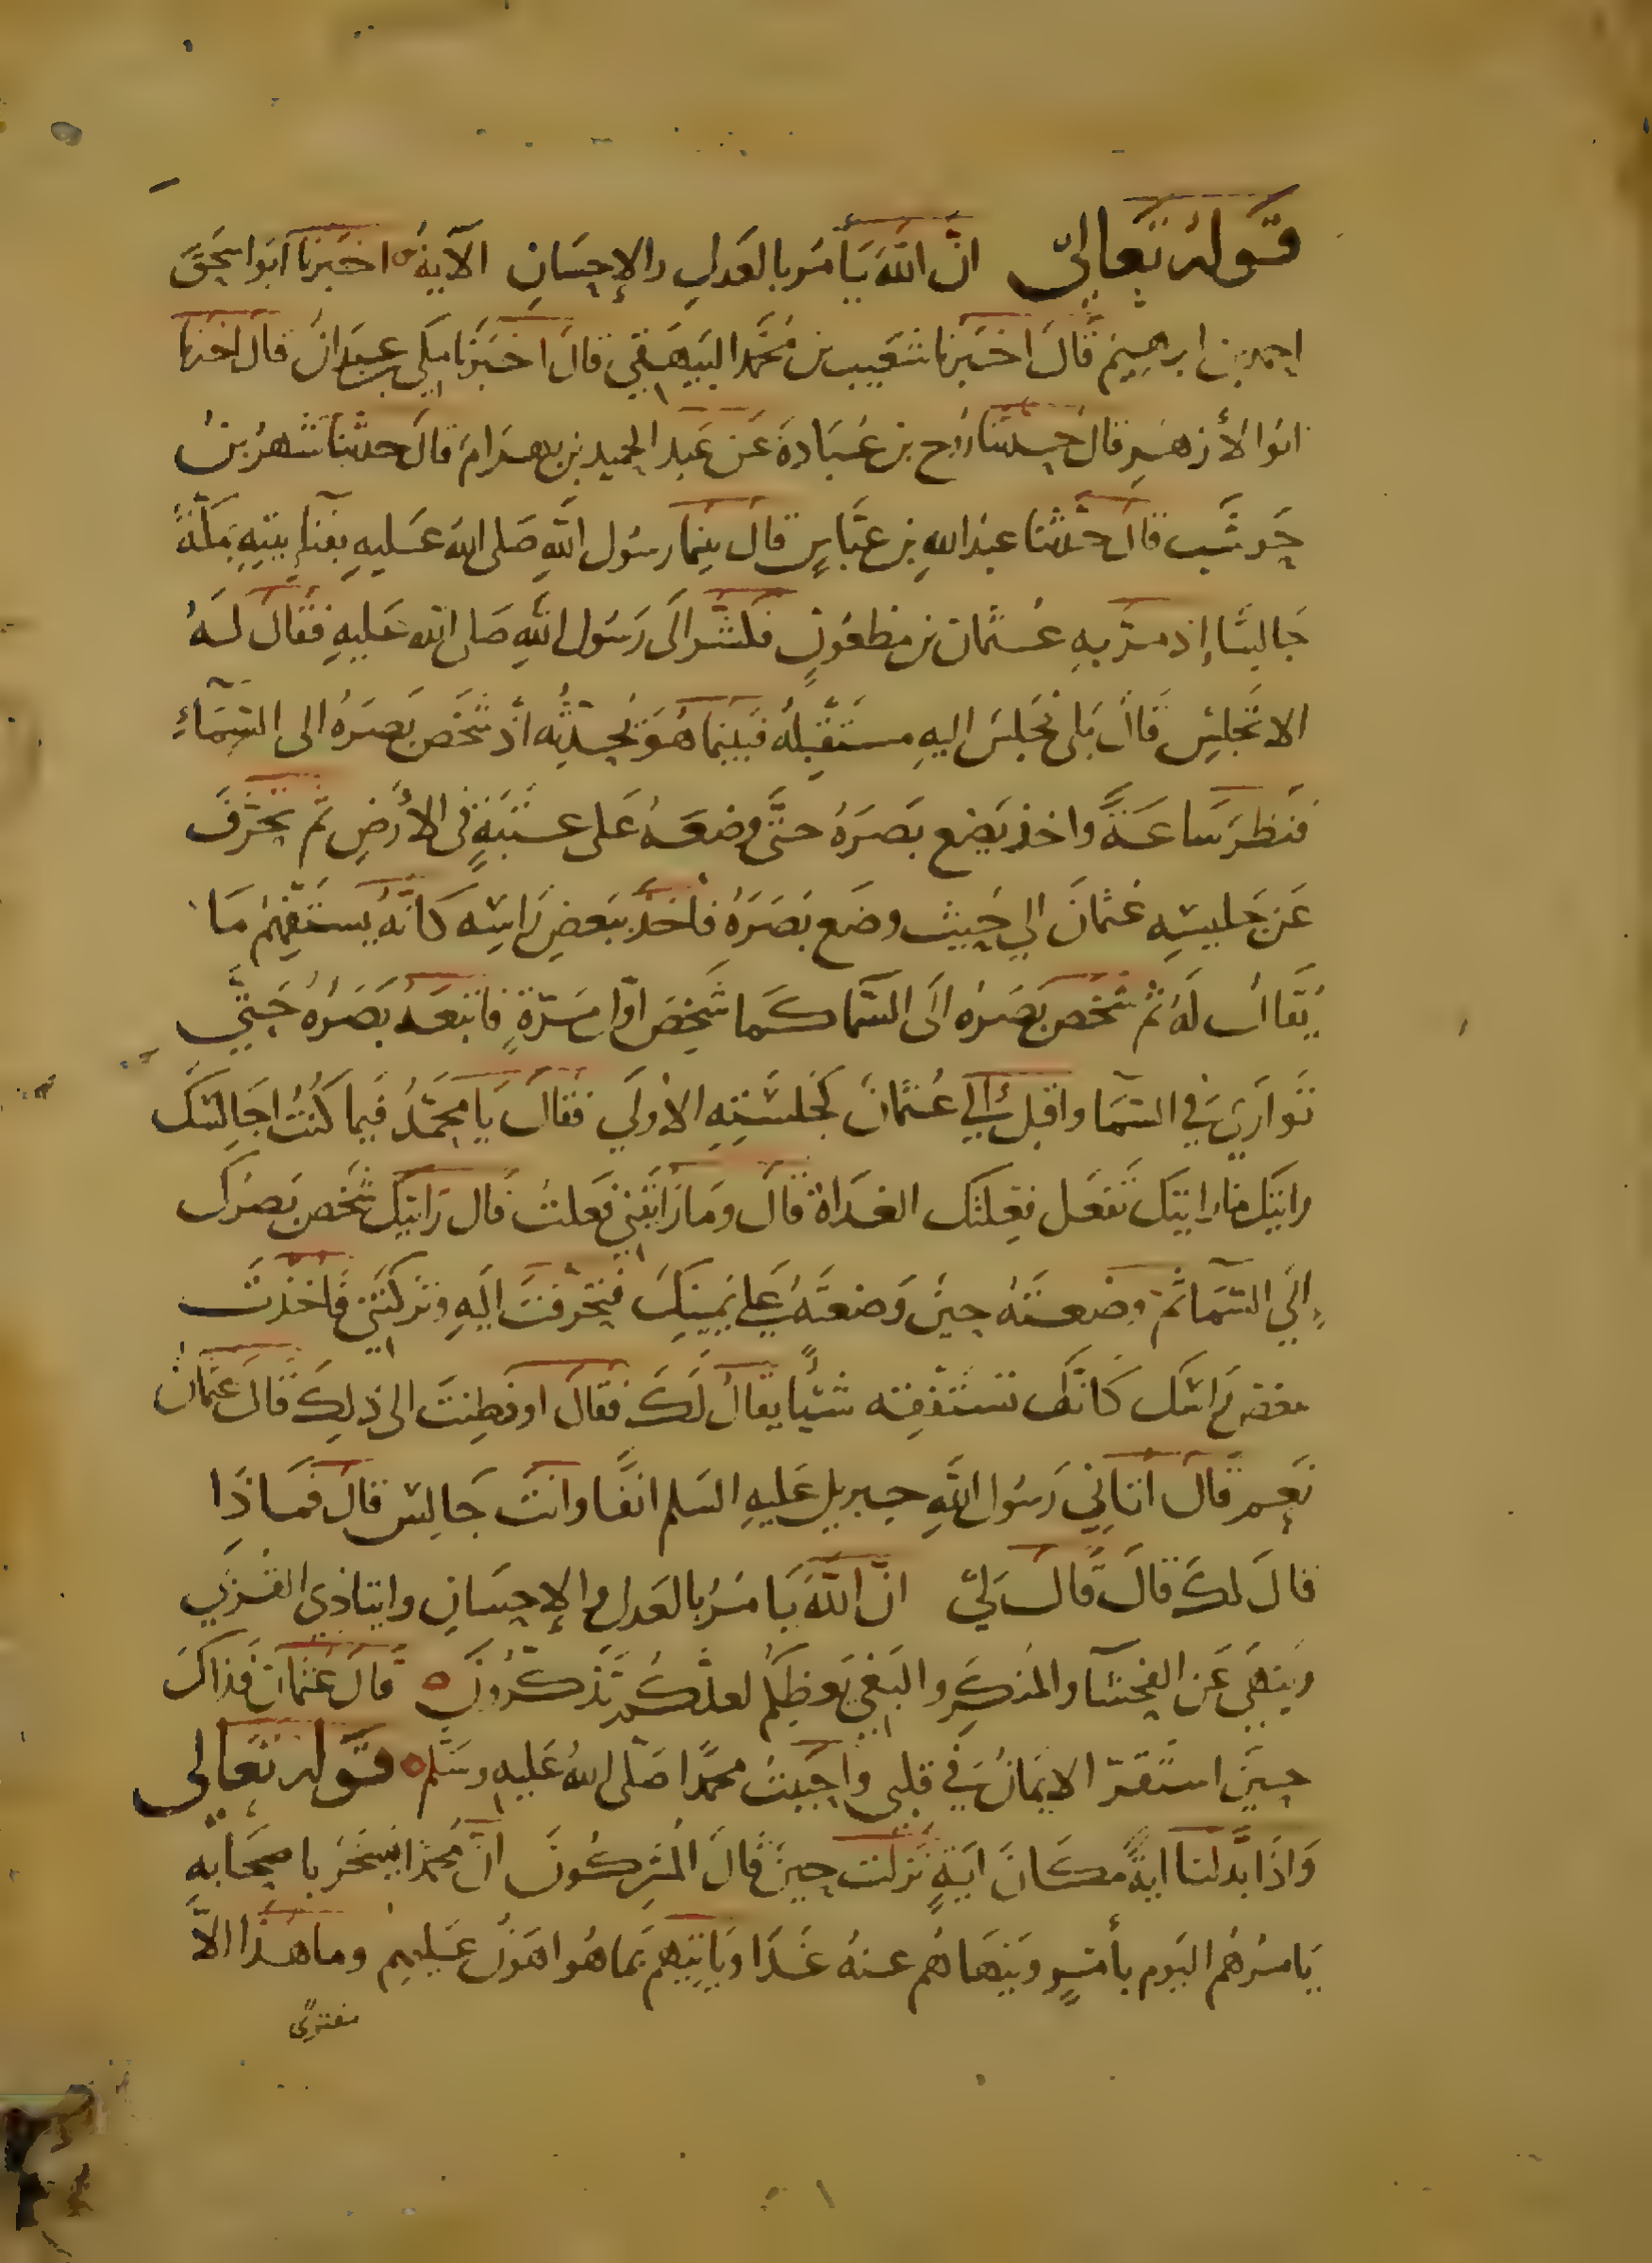 قوله تعالى ان الله يأمر بالعدل والإحسان الآية اخبرنا ابو اسحق
احمد بن ابرهيم قال اخبرنا شعيب بن محمد البيهقي قال اخبرنا مكي بن عبدان قال اخبرنا
ابو الأزهر قال حدثنا روح بن عبادة عن عبد الحميد بن بهرام قال حدثنا شهر بن
حوشب قال حدثنا عبد الله بن عباس قال بينما رسول الله صلى الله عليه بفناء بيته بمكة
جالسا إذ مر به عثمان بن مظعون فكشر الى رسول الله صلى الله عليه فقال له
الا تجلس قال بلى فجلس اليه مستقبله فبينما هو يحدثه اذ شخص بصره الى السماء
فنظر ساعة واخذ يضع بصره حتى وضعه على عتبة في الأرض ثم تحرف
عن جليسه عثمان الى حيث وضع بصره فاخذ ببعض راسه كانه يستفهم ما
يقال له ثم شخص بصره الى السما كما شخص اول مرة فاتبعه بصره حتى
توارى في السما واقبل الى عثمان كجلسته الاولى فقال يا محمد فيما كنت اجالسك
واتيك ما رايتك تفعل فعلتك الغداة قال وما رايتني فعلت قال رايتك شخص بصرك
الى السما ثم وضعته حين وضعته على يمينك فتحرفت اليه وتركتني فاخذت
ببعض راسك كانك تستفقه شيئا يقال لك فقال اوفطنت الى ذلك قال عثمان
نعم قال اتاني رسول الله جبريل عليه السلم انفا وانت جالس قال فماذا
قال لك قال قال لي ان الله يامر بالعدل والإحسان وايتا ذي القربى
وينهى عن الفحشا والمنكر والبغي يعظكم لعلكم تذكرون قال عثمان فذاك
حين استقر الايمان في قلبي واحببت محمدا صلى الله عليه وسلم قوله تعالى
واذا بدلنا اية مكان اية نزلت حين قال المشركون ان محمدا يسخر باصحابه
يامرهم اليوم بأمر وينهاهم عنه غدا وياتيهم بما هو اهون عليهم وما هذا الا
مفترى